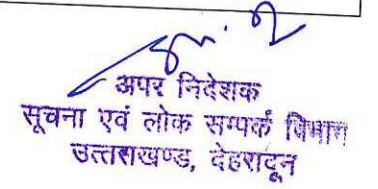 अपर निदेशक
सूचना एवं लोक सम्पर्क विभाग
उत्तराखण्ड, देहरादून